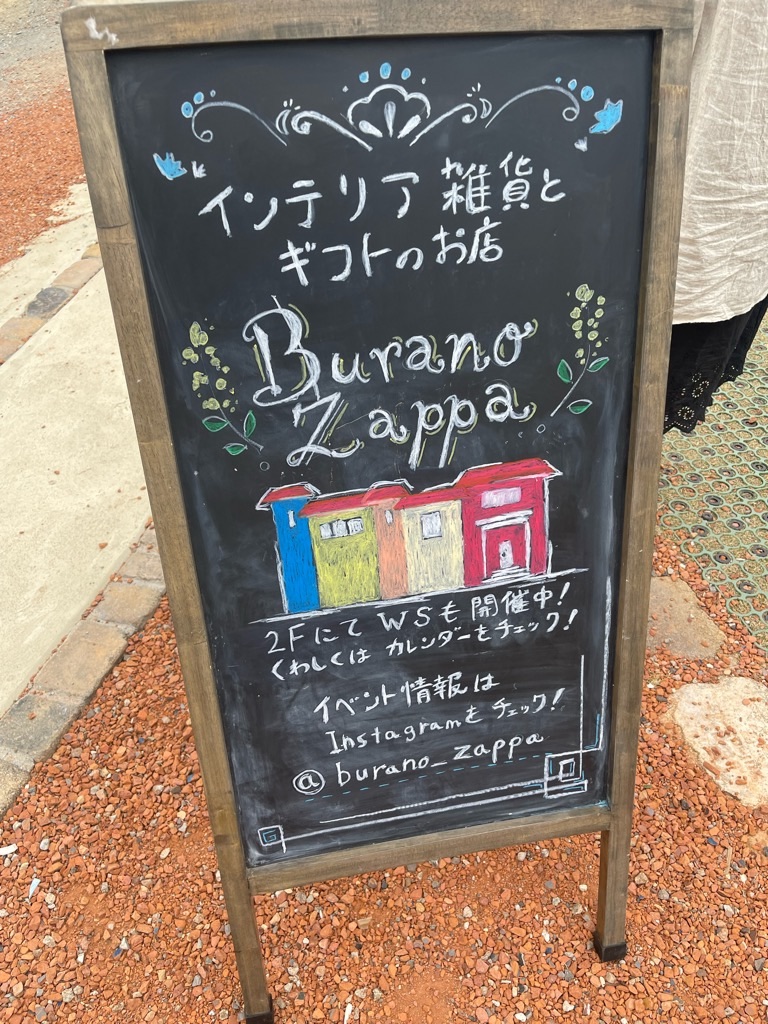 インテリア 雑貨と
ギフトのお店
Burano
Zappa
2Fにて WSも開催中!
くわしくは カレンダーをチェック!
イベント情報は
Instagramを チェック!
@burano_zappa